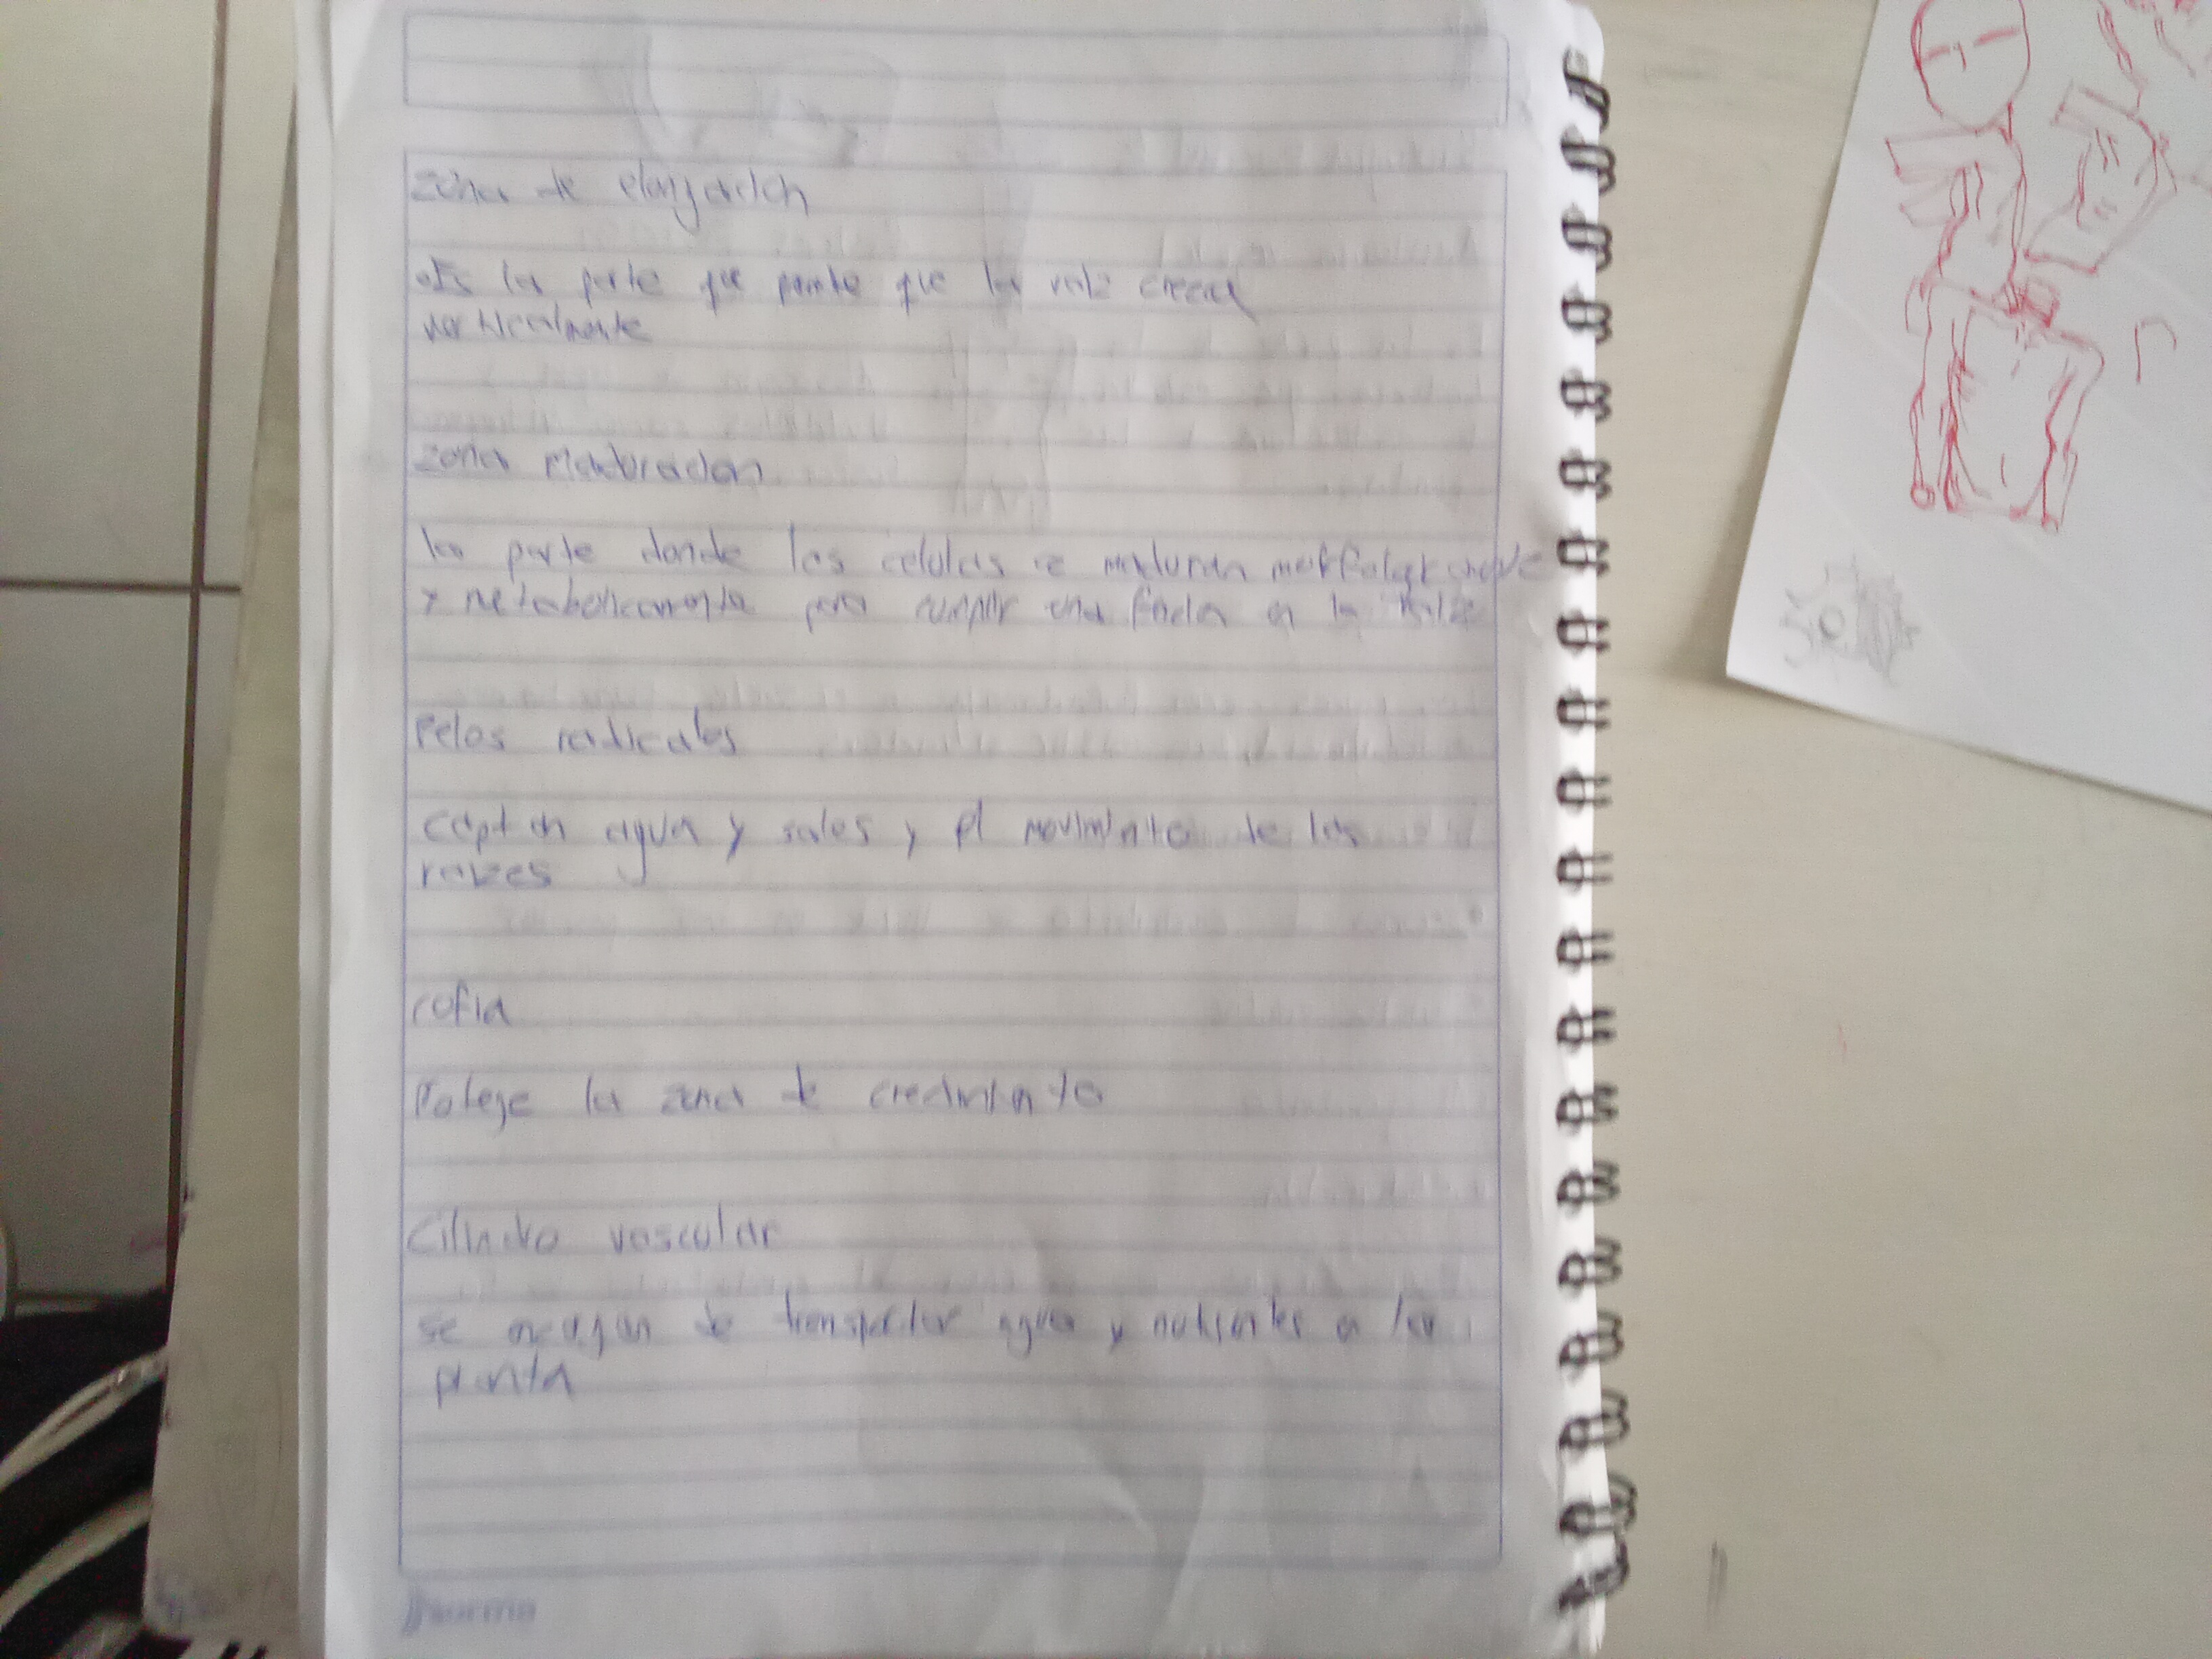 zona de elongacion
Es la parte que permite que la raiz crezca
verticalmente
zona Maduracion
la parte donde las celulas se maduran
y metabolicamente para cumplir una en la
Pelos radicales
captan agua y sales y el movimiento de las
raizes
cofia
Potege la zona de crecimiento
Cilindro vascular
se encargan de transportar agua y nutrientes a la
planta
norma